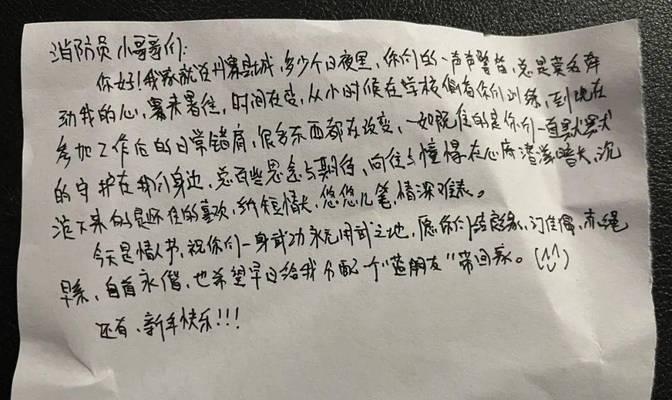 消防员小哥哥们:
你好!我家就在州寨县城,多少个日夜里,你们的一声声警笛,总是莫名牵
动我的心,暑来暑往,时间在变,从小时候在学校偶看你们训练,到现在
参加工作后的日常错肩,很多东西都在改变,一如既往的是你们一直默默
的守护在我们身边,总有些思念与期待,向往与憧憬在心底潜滋暗长,沉
淀下来的是怀住的喜欢,纸短情长,悠悠几笔,情深难表。
今天是情人节,祝你们一身武功永无用武之地,愿你们结良缘,订佳偶,赤绳
早系,白首永偕,也希望早日给我分配一个"蓝朋友"带回家。(^^)
还有,新年快乐!!!